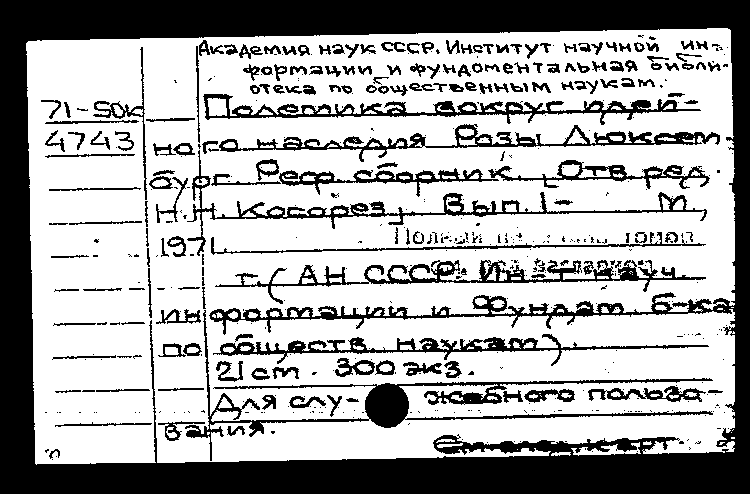 Академия наук СССР. Институт научной ин-
формации и фундоментальная библи-
отека по общественным наукам.
71-50к Полемика вокруг идей-
4743 ного наследия Розы Люксем-
бург. Реф. сборник. [Отв. ред.
Н.Н. Косорез]. Вып. 1- М,
1971.
Полный на томам
т. (АН СССР. Ин-т науч.
информации и Фундам. б-ка
по обществ. наукам).
21 см. 300 экз.
Для слу- жебного пользо-
вания.
См. след. карт.